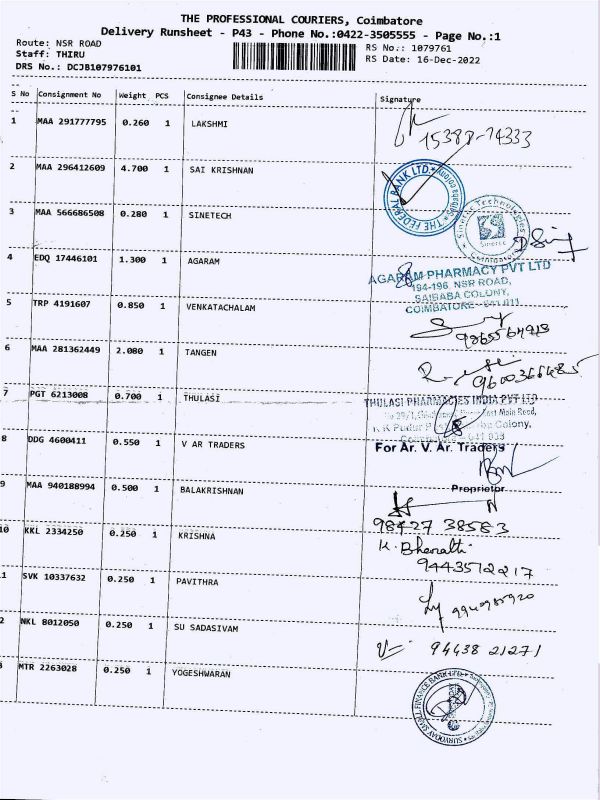 THE PROFESSIONAL COURIERS, Coimbatore
Delivery Runsheet - P43 - Phone No.:0422-3505555 - Page No.:1
Route: NSR ROAD
RS No.: 1079761
Staff: THIRU
RS Date: 16-Dec-2022
DRS No.: DCJB107976101
S No Consignment No Weight PCS Consignee Details Signature
1 MAA 291777795 0.260 1 LAKSHMI
15388-74333
2 MAA 296412609 4.700 1 SAI KRISHNAN
THE FEDERAL BANK LTD.
3 MAA 566686508 0.280 1 SINETECH
Sinerix Technologies
Coimbatore
4 EDQ 17446101 1.300 1 AGARAM
AGARAM PHARMACY PVT LTD
194-196, NSR ROAD,
SAIBABA COLONY,
COIMBATORE - 641 011
5 TRP 4191607 0.850 1 VENKATACHALAM
6 MAA 281362449 2.080 1 TANGEN
9600366485
7 PGT 6213008 0.700 1 THULASI
THULASI PHARMACIES INDIA PVT LTD
East Main Road,
K K Pudur Colony,
8 DDG 4600411 0.550 1 V AR TRADERS
For Ar. V. Ar. Traders
Proprietor
9 MAA 940188994 0.500 1 BALAKRISHNAN
98427 38583
10 KKL 2334250 0.250 1 KRISHNA
K. Bharathi
9443512217
1 SVK 10337632 0.250 1 PAVITHRA
2 NKL 8012050 0.250 1 SU SADASIVAM
94438 21271
3 MTR 2263028 0.250 1 YOGESHWARAN
SURYODAY SMALL FINANCE BANK LTD